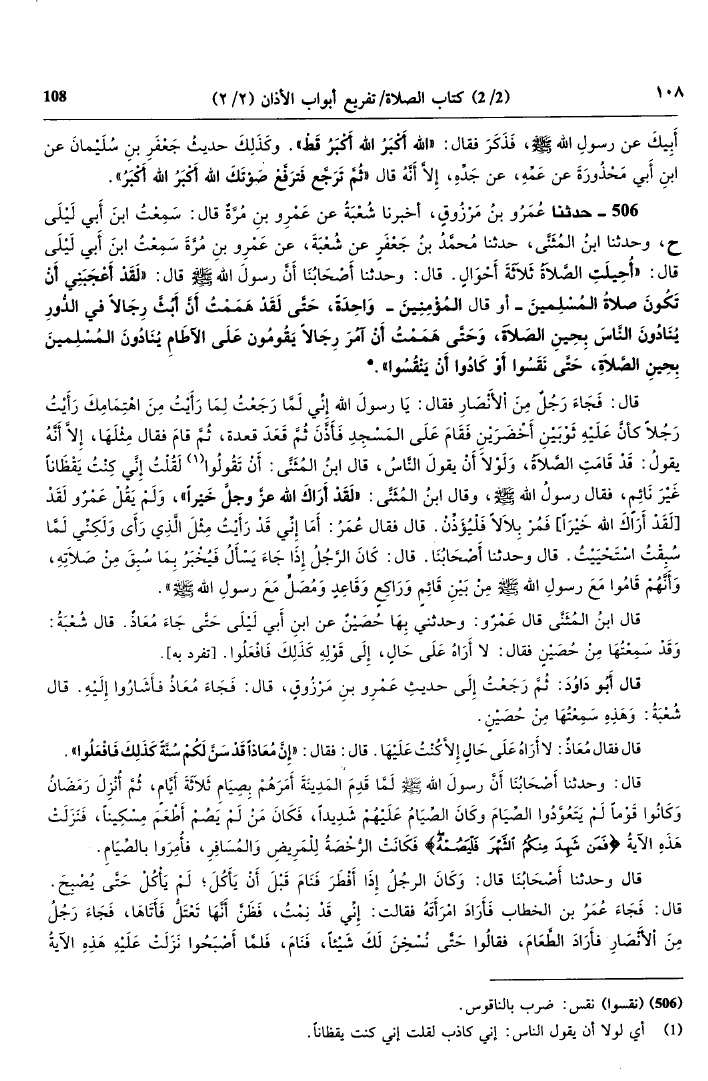 ١٠٨ (2/2) كتاب الصلاة/ تفريع أبواب الأذان (٢/٢) 108
أَبِيكَ عن رسولِ الله ﷺ، فَذَكَرَ فقال: «الله أَكْبَرُ الله أَكْبَرُ قَط». وكَذَلِكَ حديثُ جَعْفَرِ بنِ سُلَيْمانَ عن
ابنِ أبي مَحْذُورَةَ عن عَمِّهِ، عن جَدِّهِ، إِلاَّ أَنَّهُ قال «ثُمَّ تَرَجَّع فَتَرَفَّع صَوْتَكَ الله أَكْبَرُ الله أَكْبَرُ».
506 ـ حدثنا عَمْرُو بنُ مَرْزُوقٍ، أخبرنا شُعْبَةُ عن عَمْرِو بنِ مُرَّةَ قال: سَمِعْتُ ابنَ أبي لَيْلَى
ح، وحدثنا ابنُ المُثَنَّى، حدثنا مُحمَّدُ بنُ جَعْفَرٍ عن شُعْبَةَ، عن عَمْرِو بنِ مُرَّةَ سَمِعْتُ ابنَ أبي لَيْلَى
قال: «أُحِيلَتِ الصَّلاَةُ ثَلاَثَةَ أَحْوَالٍ. قال: وحدثنا أَصْحَابُنَا أَنَّ رسولَ الله ﷺ قال: «لَقَدْ أَعْجَبَنِي أَنْ
تَكُونَ صلاةُ المُسْلِمينَ ـ أو قال المُؤْمِنِينَ ـ وَاحِدَةً، حَتَّى لَقَدْ هَمَمْتُ أَنَّ أَبُثَّ رِجَالاً في الدُّورِ
يُنَادُونَ النَّاسَ بِحِينِ الصَّلاَةِ، وَحَتَّى هَمَمْتُ أَنْ آمُرَ رِجَالاً يَقُومُونَ عَلَى الآطَامِ يُنَادُونَ المُسْلِمينَ
بِحِينِ الصَّلاَةِ، حَتَّى نَقَسُوا أَوْ كَادُوا أَنْ يَنْقُسُوا».
قال: فَجَاءَ رَجُلٌ مِنَ الأَنْصَارِ فقال: يَا رسولَ الله إِنِّي لَمَّا رَجَعْتُ لِمَا رَأَيْتُ مِنَ اهْتِمَامِكَ رَأَيْتُ
رَجُلاً كأنَّ عَلَيْهِ ثَوْبَيْنِ أَخْضَرَيْنِ فَقَامَ عَلَى المَسْجِدِ فَأَذَّنَ ثُمَّ قَعَدَ قعدة، ثُمَّ قامَ فقال مِثْلَهَا، إِلاَّ أَنَّهُ
يقولُ: قَدْ قَامَتِ الصَّلاَةُ، وَلَوْلاَ أَن يقولَ النَّاسُ، قال ابنُ المُثَنَّى: أَنْ تَقُولُوا(١) لَقُلْتُ إِنِّي كُنْتُ يَقْظَاناً
غَيْرَ نَائِمٍ، فقال رسولُ الله ﷺ، وقال ابنُ المُثَنَّى: «لَقَدْ أَرَاكَ الله عزَّ وجلَّ خَيْراً»، وَلَمْ يَقُلْ عَمْرُو لَقَدْ
[لَقَدْ أَرَاكَ الله خَيْراً] فَمُرْ بِلاَلاً فَلْيُؤَذِّنْ. قال فقال عُمَرُ: أَمَا إِنِّي قَدْ رَأَيْتُ مِثْلَ الَّذِي رَأَى وَلَكِنِّي لَمَّا
سُبِقْتُ اسْتَحْيَيْتُ. قال وحدثنا أَصْحَابُنَا. قال: كَانَ الرَّجُلُ إِذَا جَاءَ يَسْأَلُ فَيُخْبَرُ بِمَا سُبِقَ مِنْ صَلاَتِهِ،
وَأَنَّهُمْ قَامُوا مَعَ رسولِ الله ﷺ مِنْ بَيْنِ قَائِمٍ وَرَاكِعٍ وَقَاعِدٍ وَمُصَلٍّ مَعَ رسولِ الله ﷺ».
قال ابنُ المُثَنَّى قال عَمْرٌو: وحدثني بِهَا حُصَيْنٌ عن ابنِ أبي لَيْلَى حَتَّى جَاءَ مُعَاذٌ. قال شُعْبَةُ:
وَقَدْ سَمِعْتُهَا مِنْ حُصَيْنٍ فقال: لا أَرَاهُ عَلَى حَالٍ، إِلَى قَوْلِهِ كَذَلِكَ فَافْعَلُوا. [تفرد به].
قال أَبُو دَاوُدَ: ثُمَّ رَجَعْتُ إلَى حديثِ عَمْرِو بنِ مَرْزُوقٍ، قال: فَجَاءَ مُعَاذٌ فأَشَارُوا إِلَيْهِ. قال
شُعْبَةُ: وَهَذِهِ سَمِعْتُهَا مِنْ حُصَيْنٍ.
قال فقال مُعَاذٌ: لا أَرَاهُ عَلَى حَالٍ إِلاَّ كُنْتُ عَلَيْهَا. قال: فقال: «إِنَّ مُعَاذاً قَدْ سَنَّ لَكُمْ سُنَّةً كَذَلِكَ فَافْعَلُوا».
قال: وحدثنا أَصْحَابُنَا أَنَّ رسولَ الله ﷺ لَمَّا قَدِمَ المَدِينَةَ أَمَرَهُمْ بِصِيَامِ ثَلاَثَةَ أَيَّامٍ، ثُمَّ أُنْزِلَ رَمَضَانُ
وَكَانُوا قَوْماً لَمْ يَتَعَوَّدُوا الصِّيَامَ وكَانَ الصِّيَامُ عَلَيْهِمْ شَدِيداً، فَكَانَ مَنْ لَمْ يَصُمْ أَطْعَمَ مِسْكِيناً، فَنَزَلَتْ
هَذِهِ الآيَةُ ﴿فَمَن شَهِدَ مِنكُمُ ٱلشَّهْرَ فَلْيَصُمْهُ﴾ فَكَانَتْ الرُّخْصَةُ لِلْمَرِيضِ وَالمُسَافِرِ، فأُمِرُوا بالصِّيَامِ.
قال وحدثنا أَصْحَابُنَا قال: وَكَانَ الرجلُ إِذَا أَفْطَرَ فَنَامَ قَبْلَ أَنْ يَأْكُلَ؛ لَمْ يَأْكُلْ حَتَّى يُصْبِحَ.
قال: فَجَاءَ عُمَرُ بن الخطاب فَأَرَادَ امْرَأَتَهُ فقالت: إِنِّي قَدْ نِمْتُ، فَظَنَّ أَنَّهَا تَعْتَلُّ فَأَتَاهَا، فَجَاءَ رَجُلٌ
مِنَ الأَنْصَارِ فأَرَادَ الطَّعَامَ، فقالُوا حَتَّى نُسْخِنَ لَكَ شَيْئاً، فَنَامَ، فَلمَّا أَصْبَحُوا نَزَلَتْ عَلَيْهِ هَذِهِ الآيَةُ
(506) (نقسوا) نقس: ضرب بالناقوس.
(1) أي لولا أن يقول الناس: إني كاذب لقلت إني كنت يقظاناً.